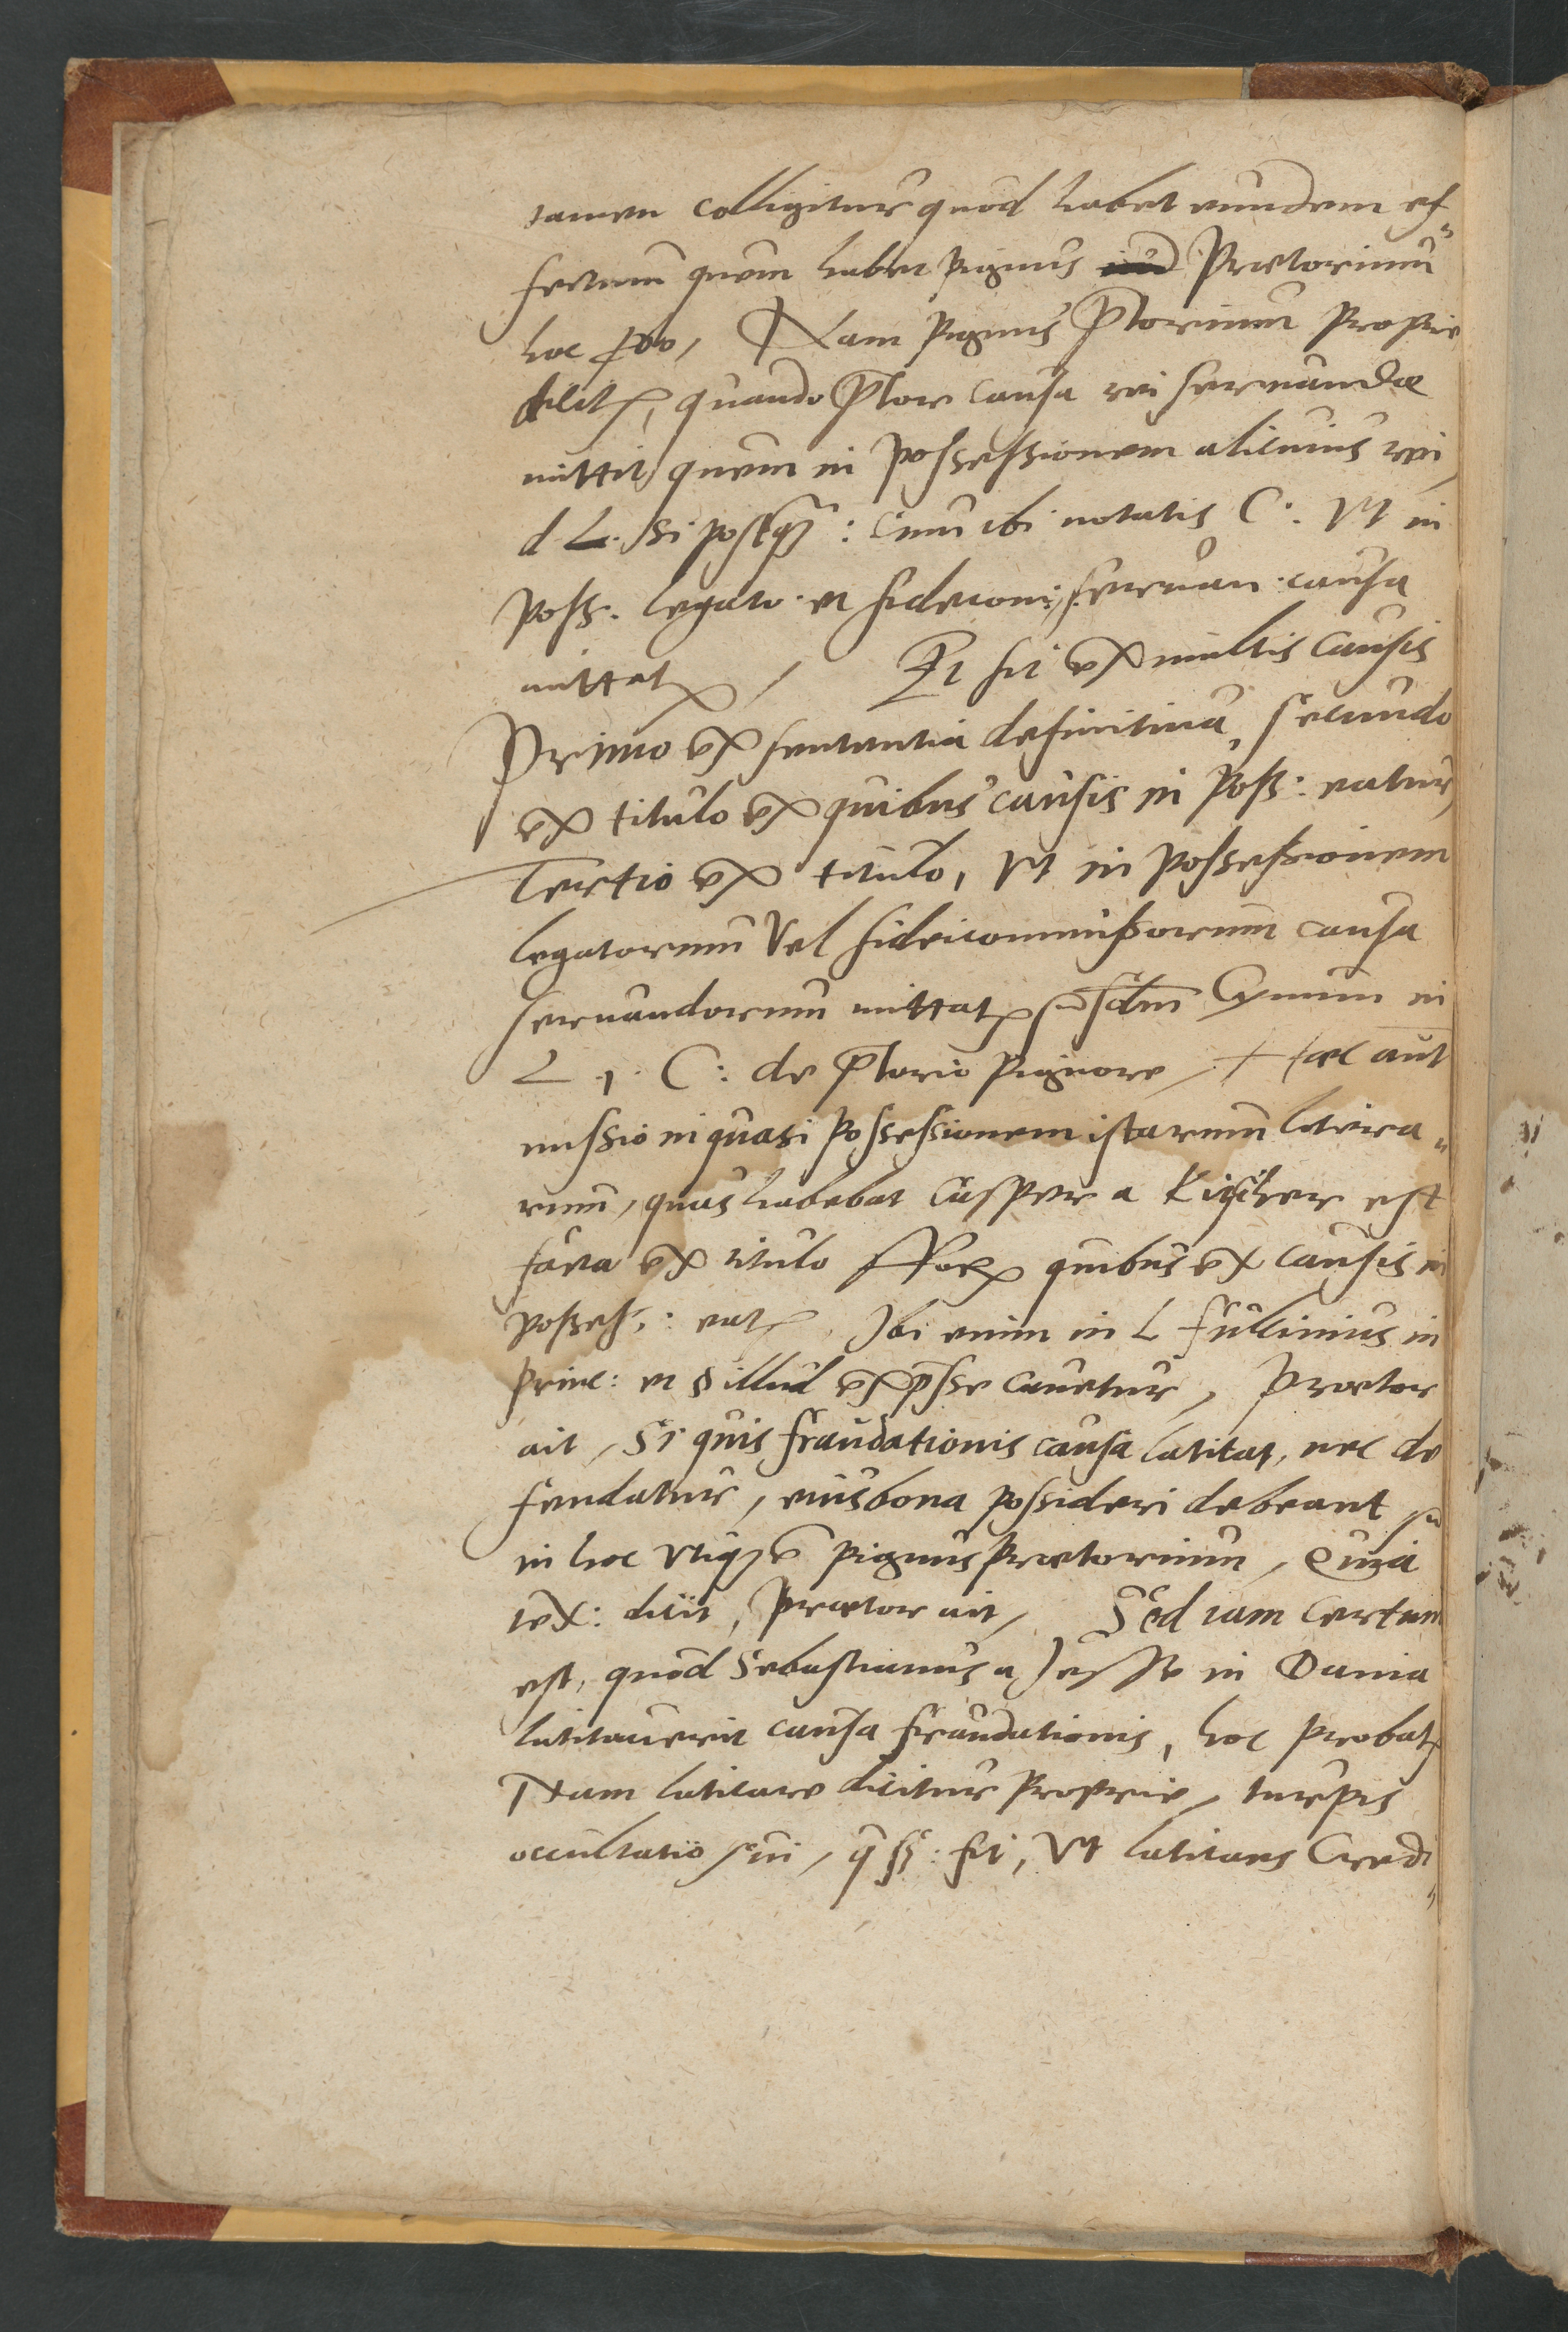 tamen colligitur quod habet eundem ef-
fectum quem habet pignus Prætorium
hoc Nam pignus p̃torium proprie
dicitr, quando p̃tor causa rei seruandæ
mittit quem in possessionem alicuius rei,
d L. si postq̃: cum ibi notatis C: Vt in
poss. legato. et fideicom: seruan. causa
mittatr / Et fit ex multis causis
Primo ex sententia definitiua, secundo
ex titulo ex quibus causis in poss: eatur,
Tertio ex titulo, Vt in possessionem
legatorum Vel fideicommissorum causa
seruandorum mittatr scdm̃ Cynum in
L 1. C: de p̃torio pignore, Hæc aut̃
missio in quasi possessionem istarum litera-
rum, quas habebat Casper a est
facta ex titulo ff quibus ex causis in
posses: eatr, Ibi enim in L Fulcinius in
princ: et § illud exp̃sse cauetur, Prætor
ait, Si quis fraudationis causa latitat, nec de
fendatur, eius bona possideri debeant
in hoc vtiqz pignus prætorium, Quia
tex: dicit, Prætor ait, Sed iam certum
est, quod Sebastianus a in Dania
latitauerit causa fraudationis, hoc probatr
Nam latitare dicitur proprie, turpis
occultatio sui, fit, Vt latitans Credi-